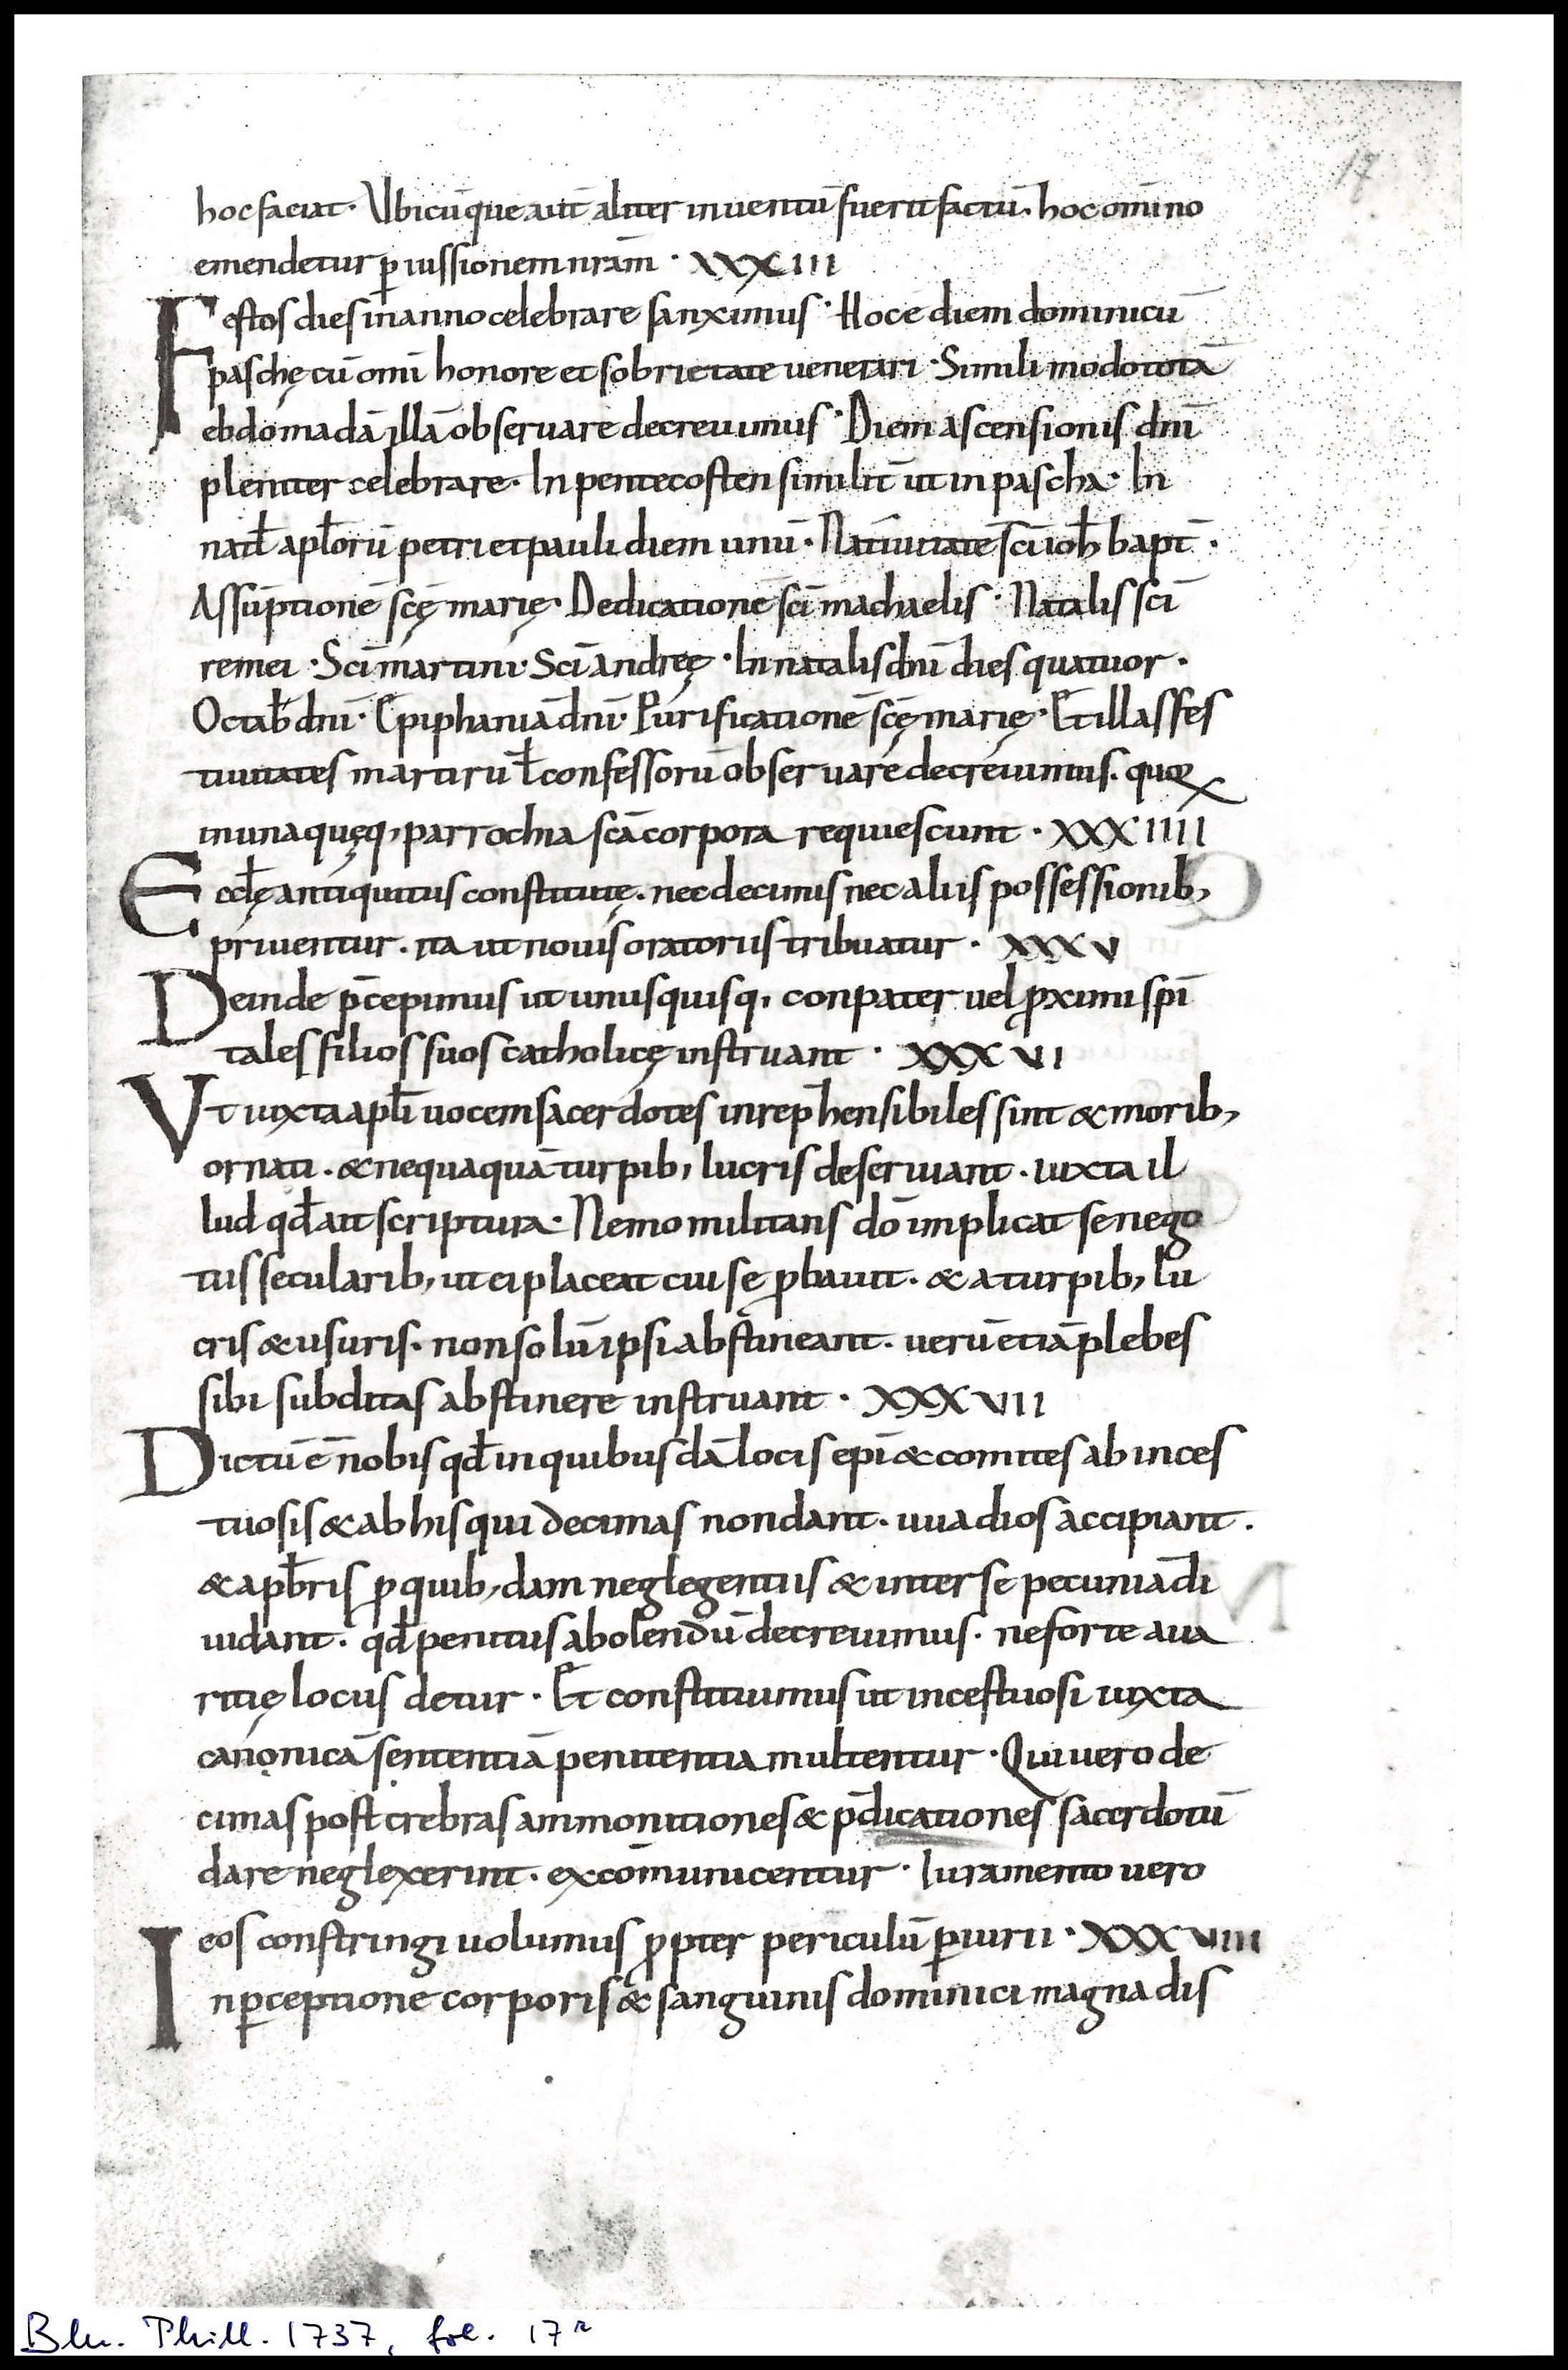 17
hoc faciat. Ubicūque aut̄ aliter inventū fuerit factū. hoc om̄ino
emendetur ꝑ iussionem nrām · XXXIII
Festos dies in anno celebrare sanximus · Hoc ē diem dominicū
paschę cū om̄i honore et sobrietate venerari · Simili modo totā
ebdomadā illā observare decrevimus · Diem ascensionis dn̄i
pleniter celebrare · In pentecosten similit̄ ut in pascha · In
natł apłorū petri et pauli diem unū · Nativitate sc̄i ioħ bapt̄ ·
Assūptionē sc̄ę marię · Dedicationē sc̄i machaelis · Natalis sc̄i
remei · Sc̄i martini · Sc̄i andreę · In natalis dn̄i dies quatuor ·
Octab̄ dn̄i · Epiphaniā dn̄i · Purificationē sc̄ę marię · Et illas fes
tivitates martirū ł confessorū observare decrevimus. quoꝝ
in una quęq; parrochia sc̄a corpora requiescunt · XXXIIII
Eccłę antiquitus constitutę. nec decimis nec aliis possessionib;
priventur. ita ut novis oratoriis tribuatur · XXXV
Deinde p̄cepimus ut unusquisq; conpater vel ꝓximi sp̄i
tales filios suos catholicę instruant · XXXVI
Ut iuxta apłi vocem sacerdotes inrep̄hensibiles sint & morib;
ornati. & nequaquā turpib; lucris deserviant. iuxta il
lud qđ ait scriptura · Nemo militans dō implicat se nego
tiis secularib; ut ei placeat cui se ꝓbavit. & a turpib; lu
cris & usuris. non solū ipsi abstineant. verū etiā plebes
sibi subditas abstinere instruant · XXXVII
Dictū ē nobis qđ in quibusdā locis ep̄i & comites ab inces
tuosis & ab his qui decimas non dant. uuadios accipiant.
& a p̄bris ꝓ quib;dam neglegentiis & inter se pecuniā di
vidant. qđ penitus abolendū decrevimus. ne forte ava
ritię locus detur · Et constituimus ut incestuosi iuxta
canonicā sententiā penitentia multentur · Qui vero de
cimas post crebras ammonitiones & p̄dicationes sacerdotū
dare neglexerint. excōmunicentur · Iuramento vero
eos constringi volumus ꝓpter periculū ꝑiurii · XXXVIII
In ꝑceptione corporis & sanguinis dominici magna dis
Bln. Phill. 1737, fol. 17r